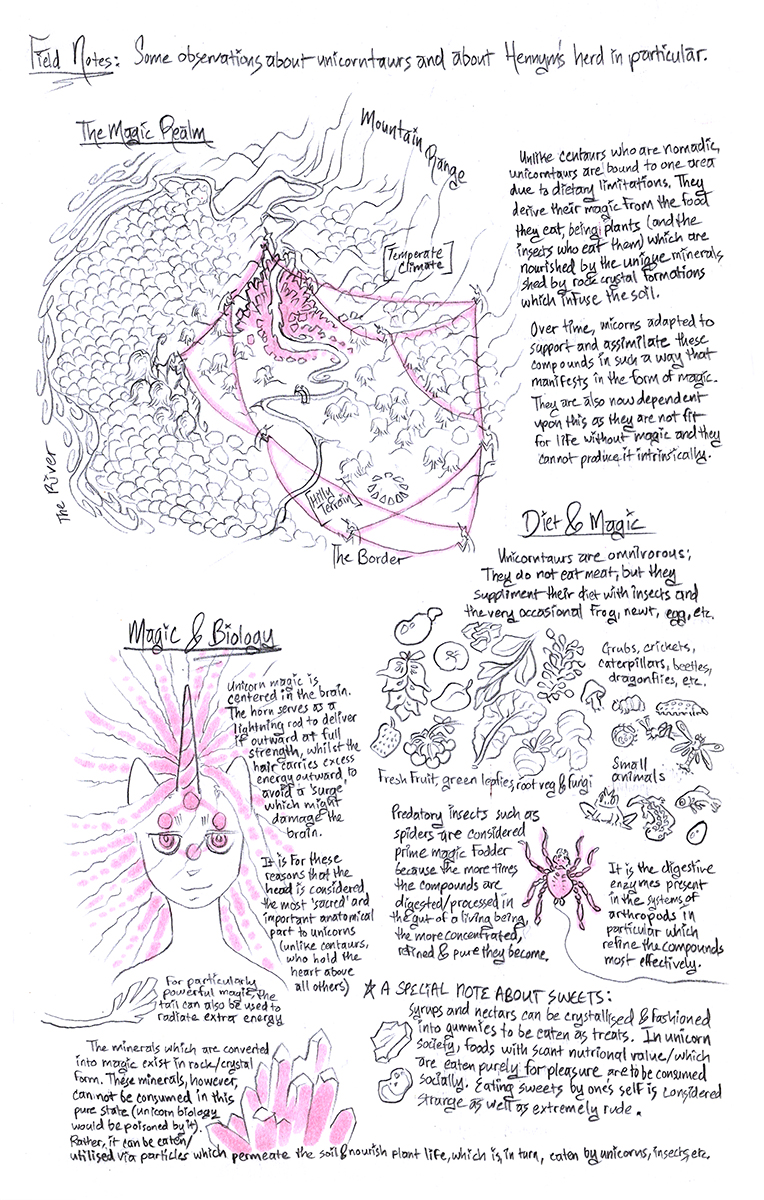 Field Notes: Some observations about unicorntaurs and about Hennym's herd in particular.
The Magic Realm
Mountain Range
Temperate
Climate
The River
Hilly
Terrain
The Border
Unlike centaurs who are nomadic,
unicorntaurs are bound to one area
due to dietary limitations. They
derive their magic from the food
they eat, being plants (and the
insects who eat them) which are
nourished by the unique minerals
shed by rock crystal formations
which infuse the soil.
Over time, unicorns adapted to
support and assimilate these
compounds in such a way that
manifests in the form of magic.
They are also now dependent
upon this as they are not fit
for life without magic and they
cannot produce it intrinsically.
Diet & Magic
Unicorntaurs are omnivorous;
They do not eat meat, but they
suppliment their diet with insects and
the very occasional frog, newt, egg, etc.
Grubs, crickets,
caterpillars, beetles,
dragonflies, etc.
Small
animals
Fresh fruit, green leafies, root veg & fungi
Predatory insects such as
spiders are considered
prime magic fodder
because the more times
the compounds are
digested/processed in
the gut of a living being,
the more concentrated,
refined & pure they become.
It is the digestive
enzymes present
in the systems of
arthropods in
particular which
refine the compounds
most effectively.
Magic & Biology
Unicorn magic is
centered in the brain.
The horn serves as a
lightning rod to deliver
it outward at full
strength, whilst the
hair carries excess
energy outward, to
avoid a 'surge'
which might
damage the
brain.
It is for these
reasons that the
head is considered
the most 'sacred' and
important anatomical
part to unicorns
(unlike centaurs,
who hold the
heart above
all others)
For particularly
powerful magic, the
tail can also be used to
radiate extra energy
The minerals which are converted
into magic exist in rock/crystal
form. These minerals, however,
cannot be consumed in this
pure state (unicorn biology
would be poisoned by it).
Rather, it can be eaten/
utilised via particles which permeate the soil & nourish plant life, which is, in turn, eaten by unicorns, insects, etc.
☆ A SPECIAL NOTE ABOUT SWEETS:
syrups and nectars can be crystallised & fashioned
into gummies to be eaten as treats. In unicorn
society, foods with scant nutritional value/which
are eaten purely for pleasure are to be consumed
socially. Eating sweets by one's self is considered
strange as well as extremely rude.